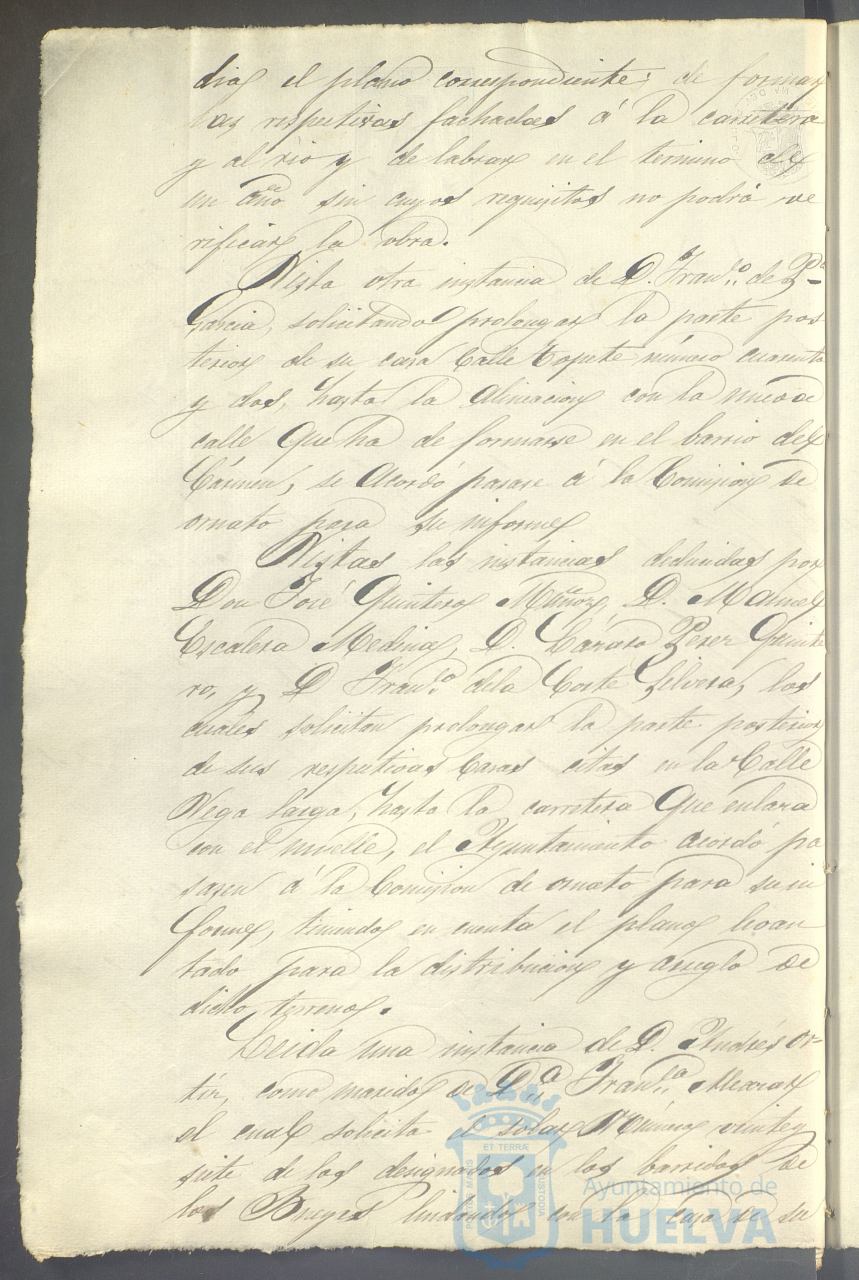 dias el plano correspondiente; de formar
las respectivas fachadas á la carretera
y al rio y de labrar en el termino del
un año sin cuyos requisitos no podrá ve
rificar la obra.
Vista otra instancia de D. Franco. de P.
Garcia, solicitando prolongar la parte pos
terior de su casa Calle Topete número cuarenta
y dos, hasta la alineacion con la nueva
calle que ha de formarse en el barrio del
Cármen, se acordó pasase á la Comision de
ornato para su informe
Vistas las instancias deducidas por
Don José Quintero Muñoz, D. Manuel
Escalera Medina, D. Lázaro Perez Quinte
ro, y D Franco. de la Corte Gelvera, los
cuales solicitan prolongar la parte posterior
de sus respectivas Casas citas en la Calle
Vega larga, hasta la carretera que enlaza
con el muelle, el Ayuntamiento acordó pa
sasen á la Comision de ornato para su in
forme, teniendo en cuenta el plano levan
tado para la distribucion y arreglo de
dicho terreno.
Leida una instancia de D. Andrés Or-
tiz, como marido de Dª Franca.
el cual solicita el solar Número veinte y
siete de los designados en los barridos de
los lindando con la casa de su
ET TERRÆ
CUSTODIA
Ayuntamiento de
HUELVA